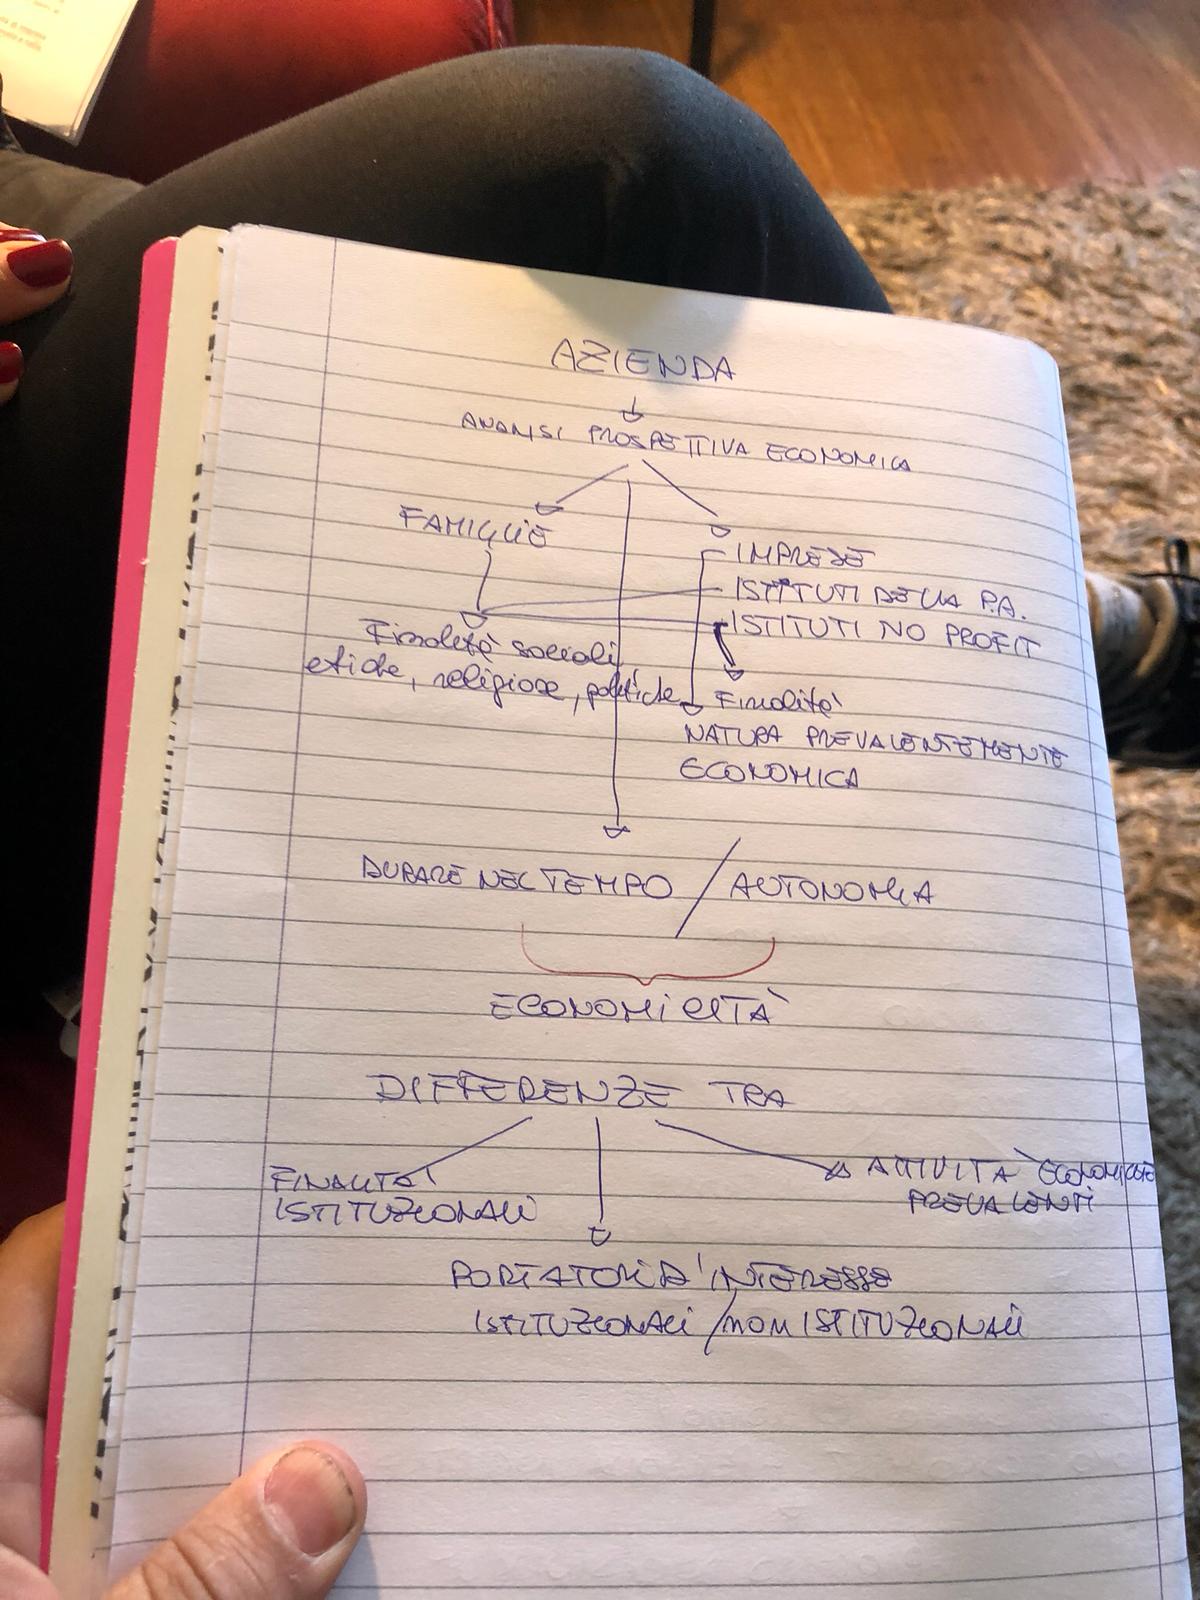 AZIENDA
ANALISI PROSPETTIVA ECONOMICA
FAMIGLIE
IMPRESE
ISTITUTI DELLA P.A.
ISTITUTI NO PROFIT
Finalità sociali
etiche, religiose, politiche
Finalità
NATURA PREVALENTEMENTE
ECONOMICA
DURARE NEL TEMPO / AUTONOMIA
ECONOMICITÀ
DIFFERENZE TRA
FINALITÀ
ISTITUZIONALI
ATTIVITÀ ECONOMICHE
PREVALENTI
PORTATORI D'INTERESSE
ISTITUZIONALI / NON ISTITUZIONALI